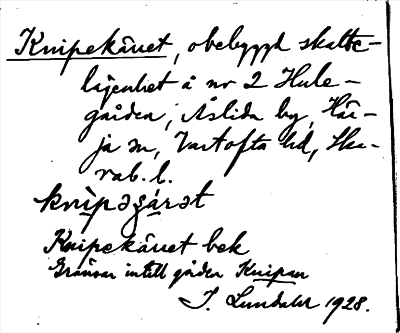 Knipekäret, obebyggd skatte-
lägenhet å nr 2 Hule-
gården, Åslida by, Här-
ja sn, Vartofta hd, Ska-
rab. l.
knìpəgárət
Knipekäret bek
Gränsar intill gården Knipan
J. Lundahl 1928.